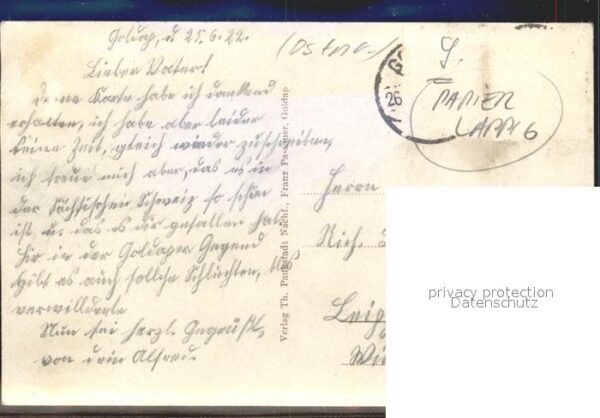 Goldap, d 25.6.22.
Lieber Vater!
deine Karte habe ich dankend
erhalten, ich habe aber leider
keine Zeit, gleich wieder zuschreiben,
ich freue mich aber, das es in
der Sächsischen Schweiz so schön
ist u. das es dir gefallen hat.
hier in der Goldaper Gegend
gibt es auch solche Schluchten, blos
verwilderte
Nun sei herzl. Gegrüßt,
von dein Alfred.
Verlag Th. Nachf., Franz Passauer, Goldap
26
S.
PAPIER
LAPP 6
Herrn
Rich.
Leipz
privacy protection
Datenschutz